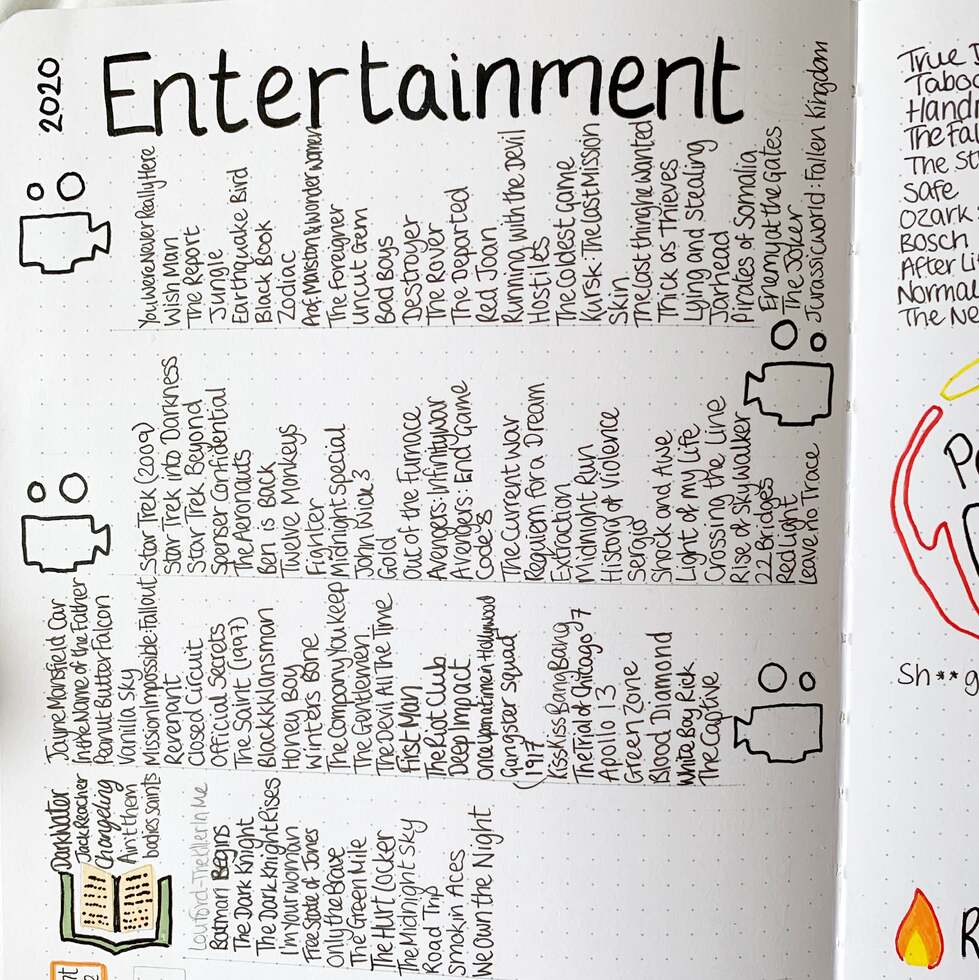 2020
Entertainment
You Were Never Really Here
Wish Man
The Report
Jungle
Earthquake Bird
Black Book
Zodiac
Prof. Marston & Wonder Women
The Foreigner
Uncut Gem
Bad Boys
Destroyer
The Rover
The Departed
Red Joan
Running with the Devil
Hostiles
The Coldest Game
Kursk: The Last Mission
Skin
The Last thing he wanted
Thick as Thieves
Lying and Stealing
Jarhead
Pirates of Somalia
Enemy at the Gates
The Joker
Jurassic World: Fallen Kingdom
Star Trek (2009)
Star Trek into Darkness
Star Trek Beyond
Spenser Confidential
The Aeronauts
Ben is Back
Twelve Monkeys
Fighter
Midnight Special
John Wick 3
Gold
Out of the Furnace
Avengers: Infinity War
Avengers: End Game
Code 8
The Current War
Requiem for a Dream
Extraction
Midnight Run
History of Violence
Sergio
Shock and Awe
Light of my Life
Crossing the Line
Rise of Skywalker
22 Bridges
Red Light
Leave no Trace
Jayne Mansfield Car
In the Name of the Father
Peanut Butter Falcon
Vanilla Sky
Mission Impossible: Fallout
Revenant
Closed Circuit
Official Secrets
The Saint (1997)
Blackkklansman
Honey Boy
Winters Bone
The Company You Keep
The Gentlemen
The Devil All The Time
First Man
The Riot Club
Deep Impact
Once upon a time in Hollywood
Gangster Squad
1917
Kiss Kiss Bang Bang
The Trial of Chicago 7
Apollo 13
Green Zone
Blood Diamond
White Boy Rick
The Captive
Dark Water
Jack Reacher
Changeling
Ain't them
bodies saints
Batman Begins
The Dark Knight
The Dark Knight Rises
I'm your woman
Free State of Jones
Only the Brave
The Green Mile
The Hurt Locker
The Midnight Sky
Road Trip
Smokin Aces
We Own the Night
True
The
The
Safe
Ozark
Bosch
After
Normal
The
Sh**